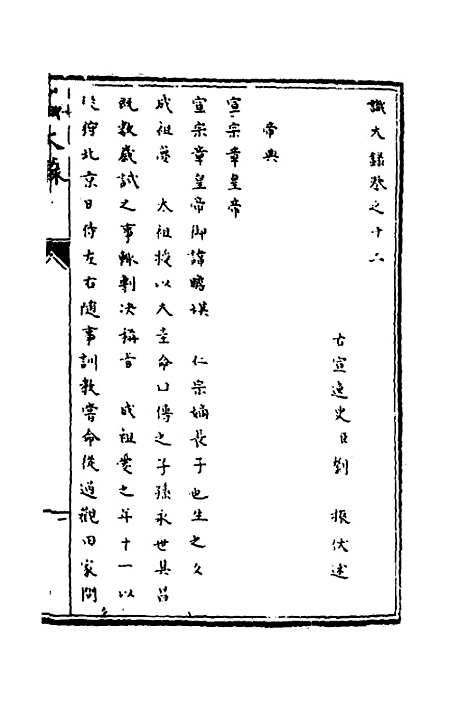 識大錄卷之十二
古宣逸史臣劉 振伏述
帝典
宣宗章皇帝
宣宗章皇帝御諱瞻基 仁宗嫡長子也生之夕
成祖夢 太祖授以大圭命曰傳之子孫永世其昌
既數歲試之事輒剸決稱旨 成祖愛之年十一以
從狩北京日侍左右隨事訓教嘗命從過觀田家問
大錄